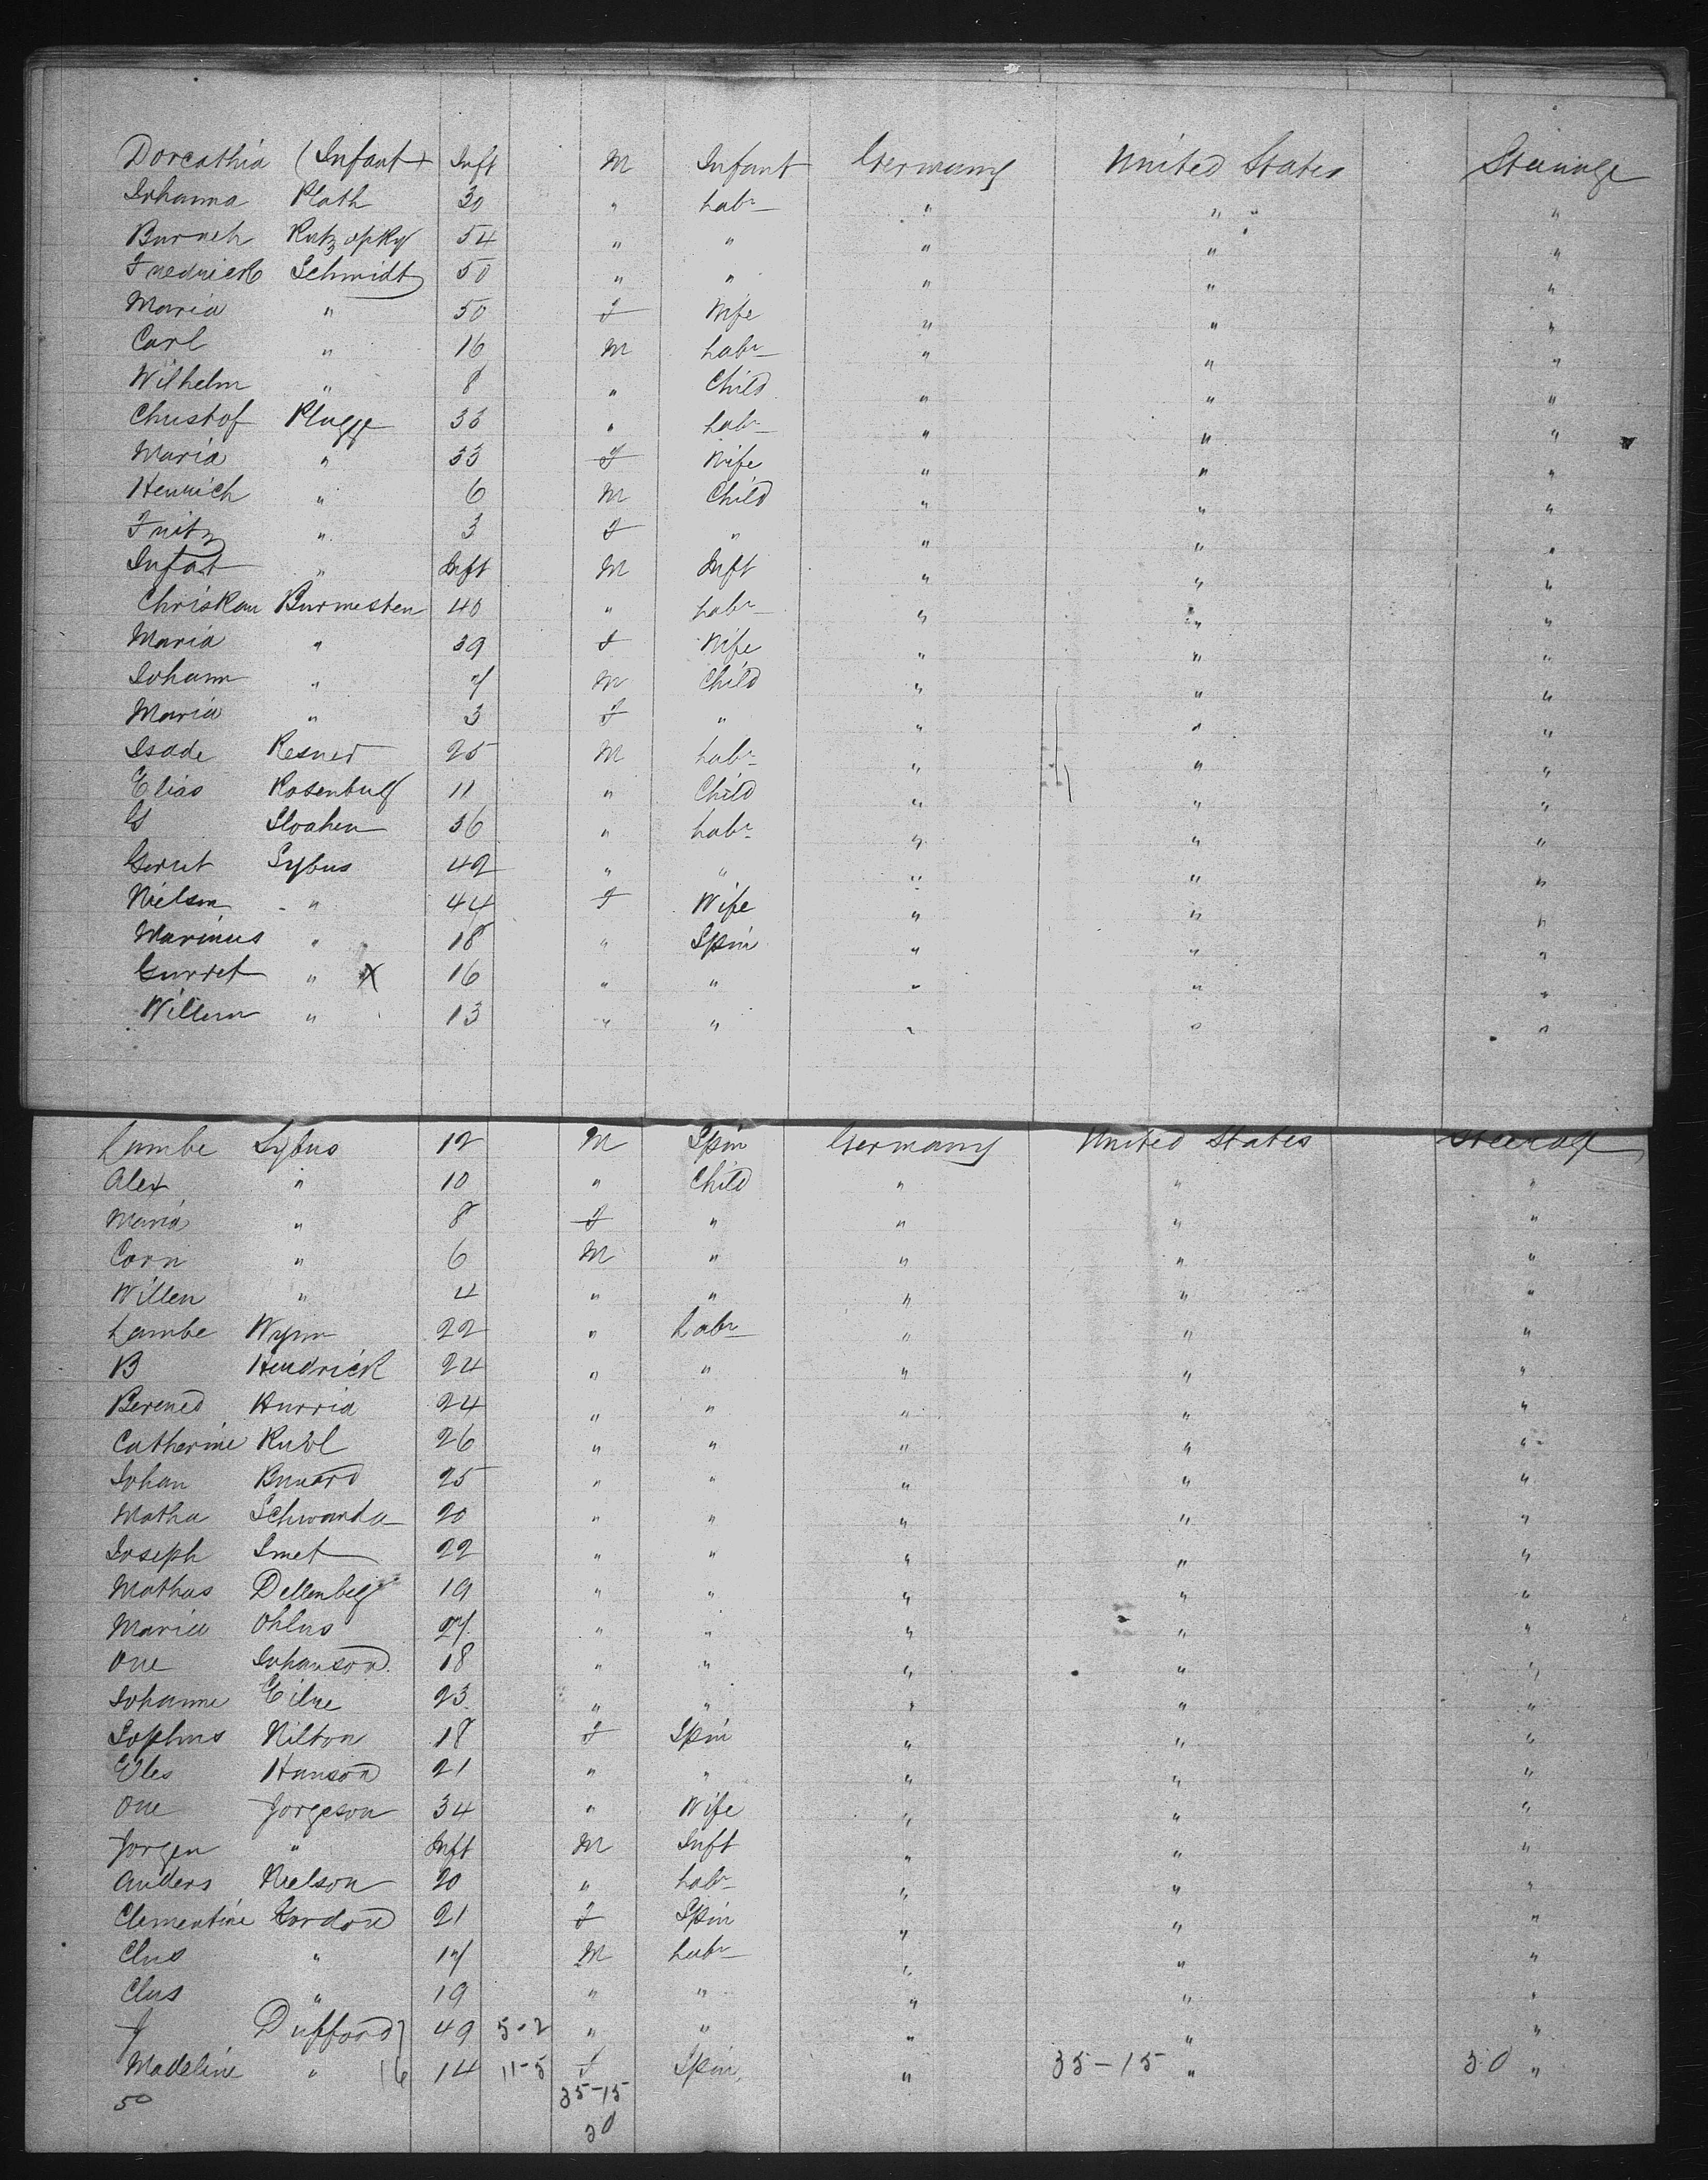 Dorcathia (Infant) Inft M Infant Germany United States Steerage
Johanna Plath 30 " Labr " " "
Burneh Rutzopky 54 " " " " "
Fredrierk Schmidt 50 " " " " "
Maria " 50 F Wife " " "
Carl " 16 M Labr " " "
Wilhelm " 8 " Child " " "
Christof Plugge 33 " Labr " " "
Maria " 33 F Wife " " "
Henrich " 6 M Child " " "
Fritz " 3 F " " " "
Infat " Inft M Inft " " "
Christian Burmesten 40 " Labr " " "
Maria " 39 F Wife " " "
Johann " 7 M Child " " "
Maria " 3 F " " " "
Isade Resner 25 M Labr " " "
Elias Rosenbulg 11 " Child " " "
G Sloahen 36 " Labr " " "
Gerrit Sybus 42 " " " " "
Nielson " 44 F Wife " " "
Marinus " 18 " Spin " " "
Gurret " X 16 " " " " "
Willem " 13 " " " " "
Lambe Sybus 12 M Spin Germany United States Steerage
Alex " 10 " Child " " "
Maria " 8 F " " " "
Corn " 6 M " " " "
Willen " 4 " " " " "
Lambe Wynn 22 " Labr " " "
B Hendrick 24 " " " " "
Berened Hurria 24 " " " " "
Catherine 26 " " " " "
Johan 25 " " " " "
Matha Schwanda 20 " " " " "
Joseph Smet 22 " " " " "
Mathas Dellenbeg 19 " " " " "
Maria Ohlus 27 " " " " "
One Johanson 18 " " " " "
Johanne Eilne 23 " " " " "
Sophus Nilton 18 F Spin " " "
Eles Hanson 21 " " " " "
One Jorgeson 34 " Wife " " "
Jorgen " Inft M Inft " " "
Anders Nielson 20 " Labr " " "
Clementine Kordon 21 F Spin " " "
Clus " 17 M Labr " " "
Clus " 19 " " " " "
J Dufford 49 5-2 " " " " "
Madeline " 16 14 11-5 F Spin " 35-15 " 50 "
50 35-15
50